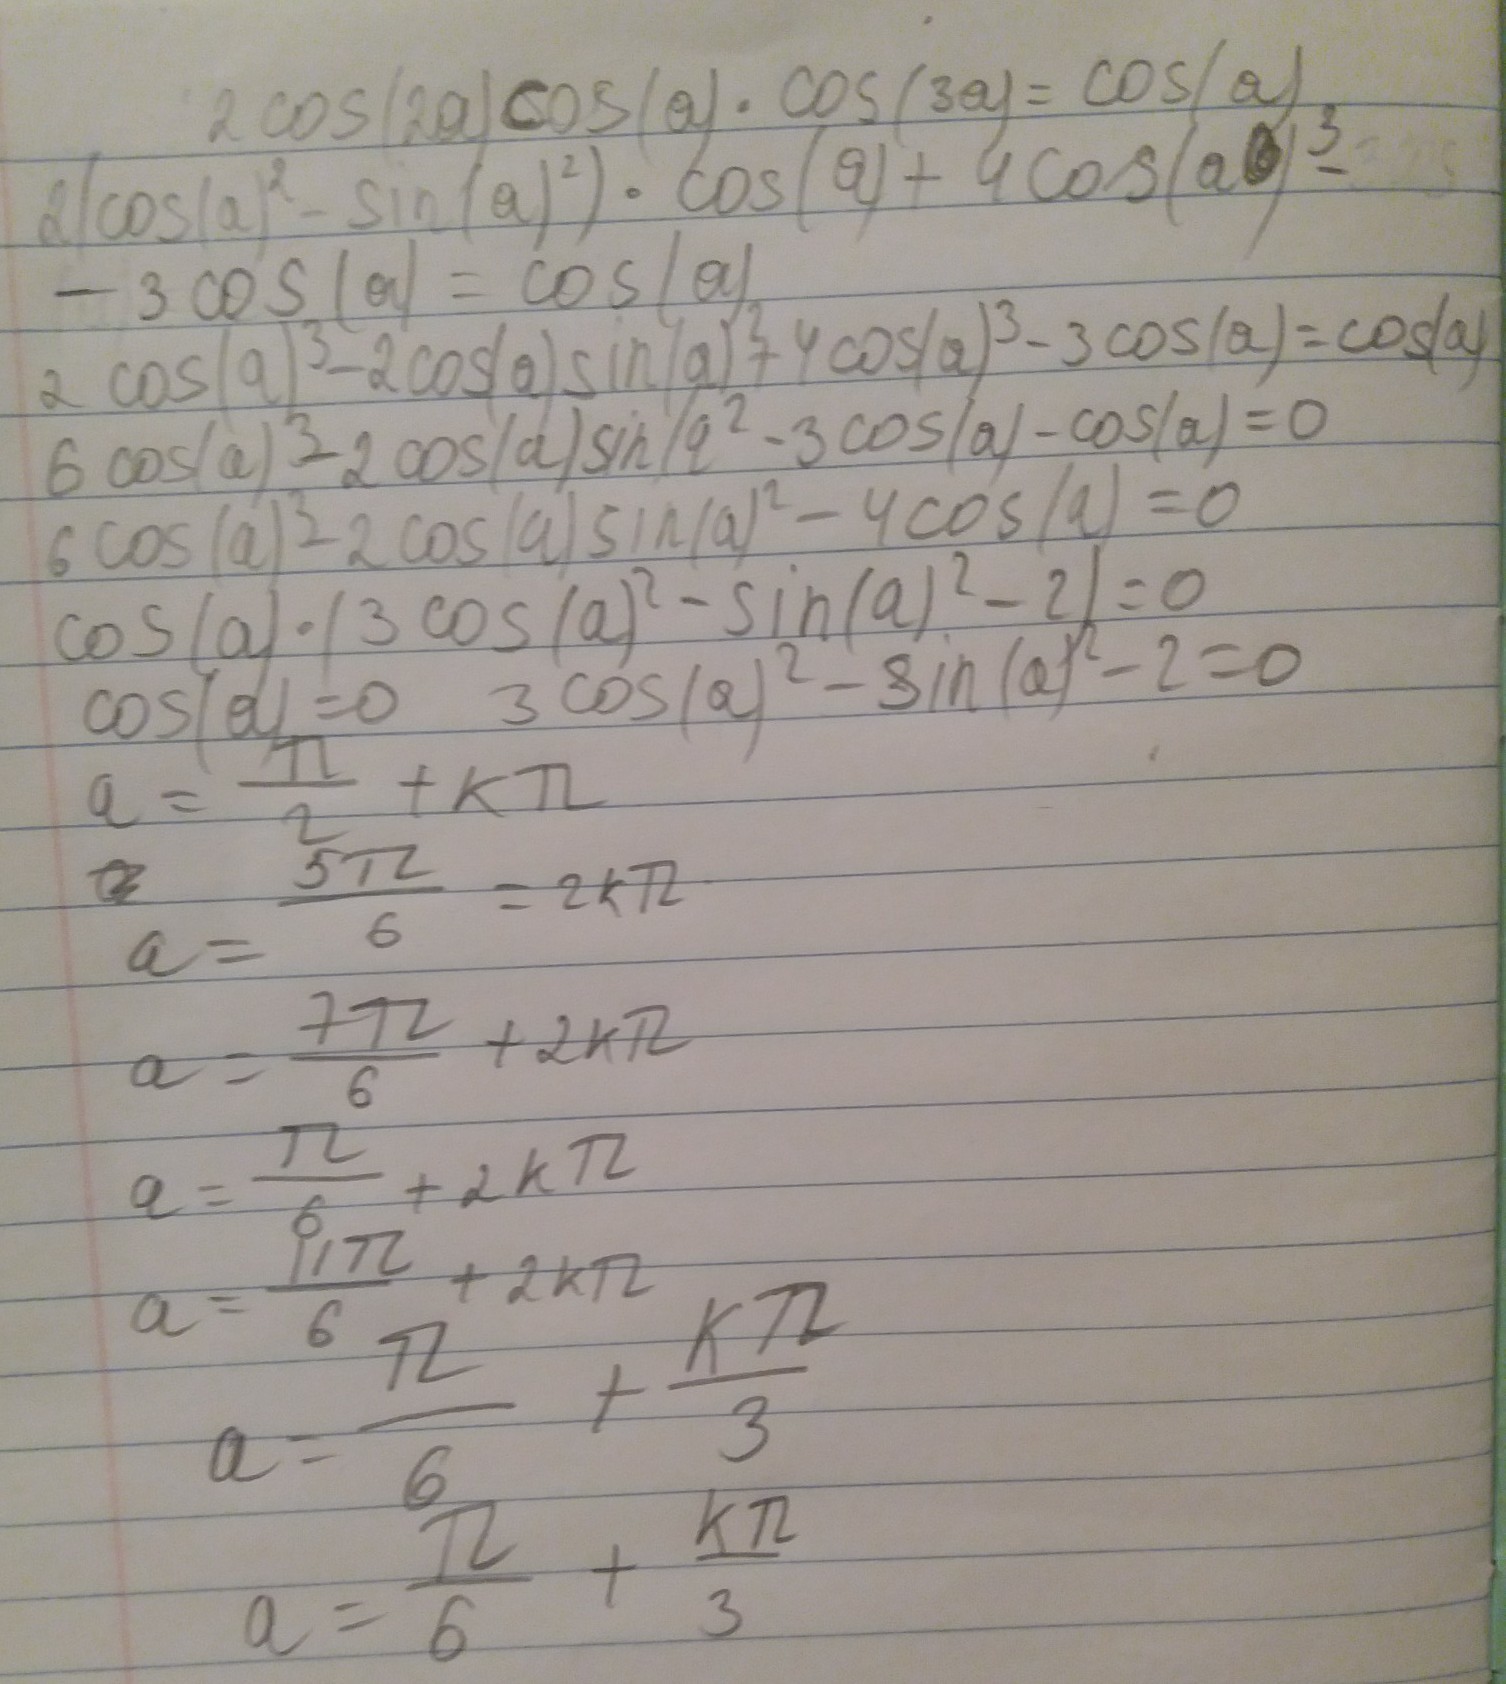 2cos(2a)cos(a)·cos(3a)=cos(a)
2(cos(a)²-sin(a)²)·cos(a)+4cos(a)³-
-3cos(a)=cos(a)
2cos(a)³-2cos(a)sin(a)²+4cos(a)³-3cos(a)=cos(a)
6cos(a)³-2cos(a)sin(a²-3cos(a)-cos(a)=0
6cos(a)³-2cos(a)sin(a)²-4cos(a)=0
cos(a)·(3cos(a)²-sin(a)²-2)=0
cos(a)=0 3cos(a)²-sin(a)²-2=0
a=π/2+kπ
a=5π/6=2kπ
a=7π/6+2kπ
a=π/6+2kπ
a=11π/6+2kπ
a=π/6+kπ/3
a=π/6+kπ/3